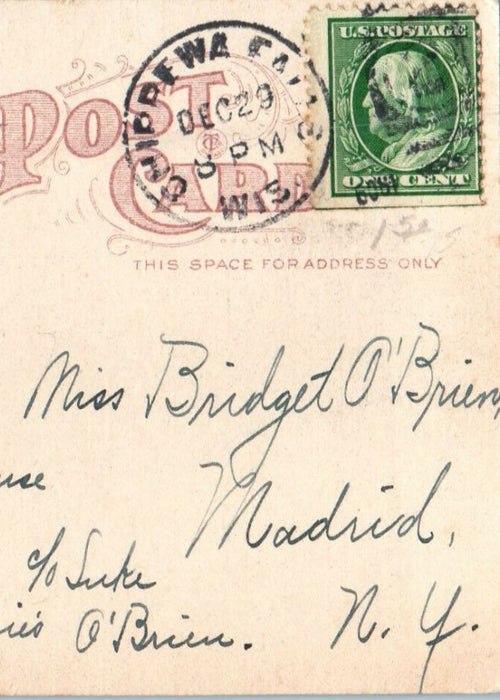 POST
CARD
CHIPPEWA FALLS
DEC 29
8 PM
WIS
U.S. POSTAGE
ONE CENT
THIS SPACE FOR ADDRESS ONLY
Miss Bridget O'Brien
Madrid,
c/o Luke
O'Brien.
N. Y.